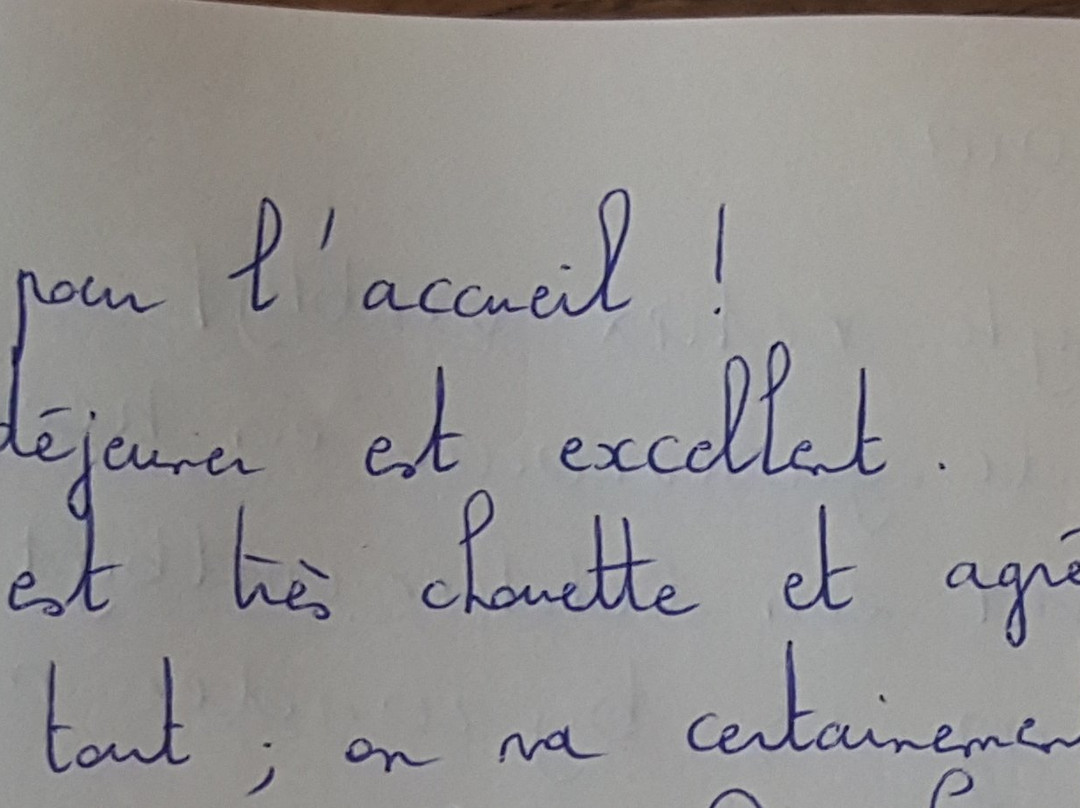 pour l'accueil !
déjeuner est excellent.
est très chouette et agré
tout ; on va certainemen